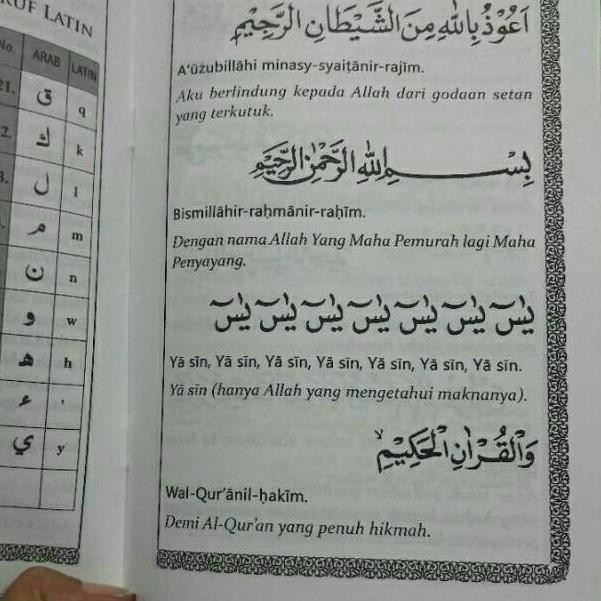 RUF LATIN
No. ARAB LATIN
21. ق q
2. ك k
3. ل l
م m
ن n
و w
ه h
ء '
ي y
اَعُوْذُ بِاللّٰهِ مِنَ الشَّيْطَانِ الرَّجِيْمِ
A'ūżubillāhi minasy-syaiṭānir-rajīm.
Aku berlindung kepada Allah dari godaan setan
yang terkutuk.
بِسْـــــمِ اللّٰهِ الرَّحْمٰنِ الرَّحِيْمِ
Bismillāhir-raḥmānir-raḥīm.
Dengan nama Allah Yang Maha Pemurah lagi Maha
Penyayang.
يٰسۤ يٰسۤ يٰسۤ يٰسۤ يٰسۤ يٰسۤ يٰسۤ
Yā sīn, Yā sīn, Yā sīn, Yā sīn, Yā sīn, Yā sīn, Yā sīn.
Yā sīn (hanya Allah yang mengetahui maknanya).
وَالْقُرْاٰنِ الْحَكِيْمِۙ
Wal-Qur'ānil-ḥakīm.
Demi Al-Qur'an yang penuh hikmah.